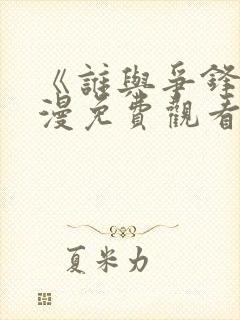 《誰與爭鋒
漫免費觀看
夏米力